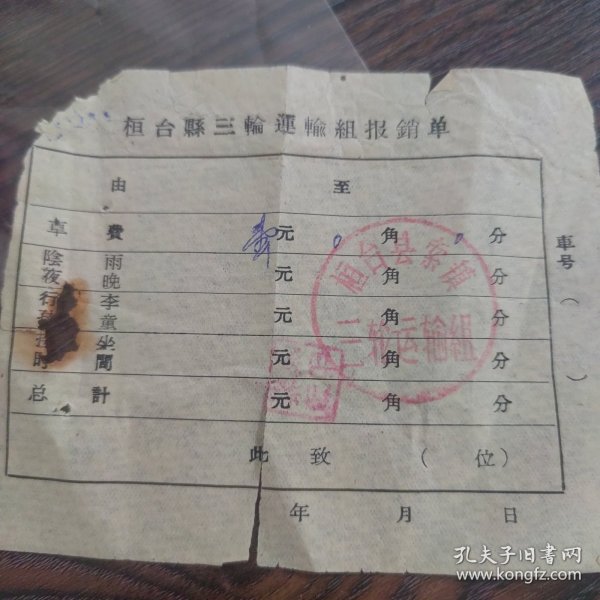 桓台縣三輪運輸組报銷单
由 至
車費 元0角0分
陰雨 元 角 分
夜晚
行李 元 角 分
童
坐 元 角 分
時間
总計 元 角 分
此致 ( 位)
年 月 日
車号( )
桓台县索镇
三轮运输组
孔夫子旧书网
www.kongfz.com